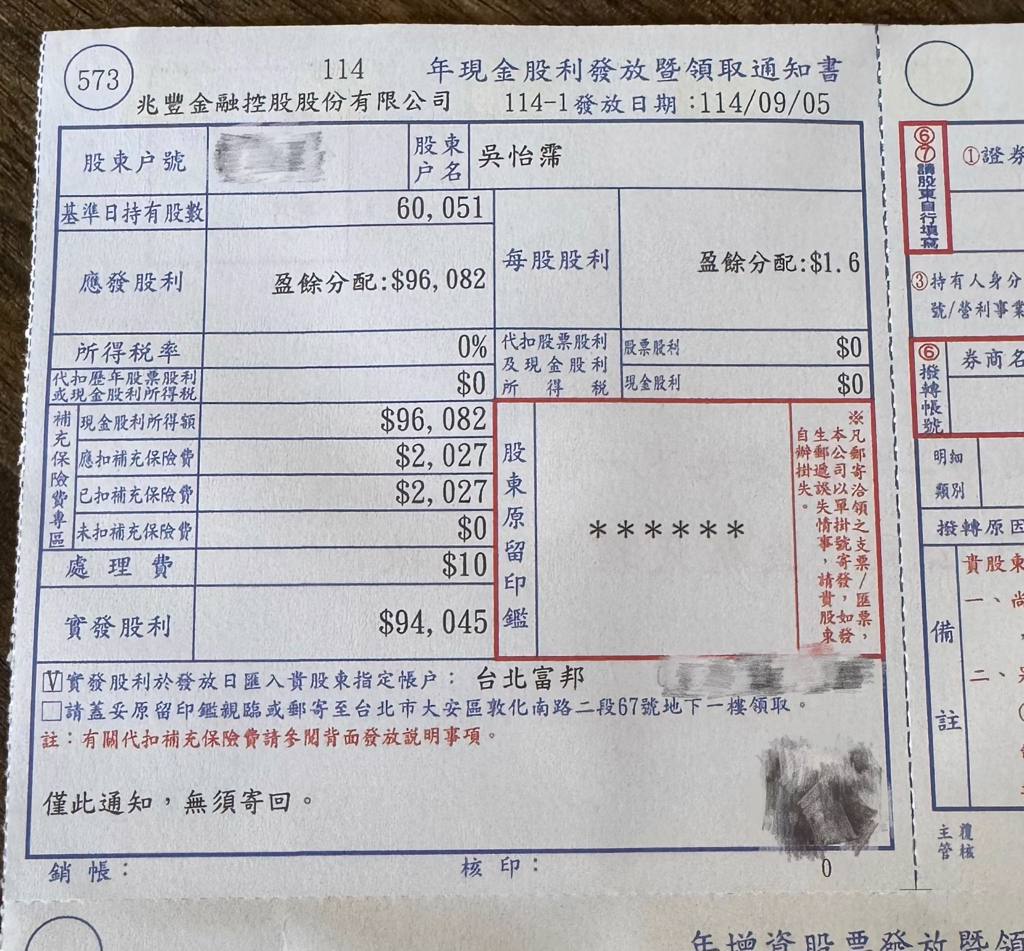 573
114 年現金股利發放暨領取通知書
兆豐金融控股股份有限公司 114-1發放日期:114/09/05
股東户號
股東户名 吳怡霈
基準日持有股數 60,051
應發股利 盈餘分配:$96,082
每股股利 盈餘分配:$1.6
所得稅率 0%
代扣歷年股票股利或現金股利所得稅 $0
代扣股票股利及現金股利所得稅
股票股利 $0
現金股利 $0
補充保險費專區
現金股利所得額 $96,082
應扣補充保險費 $2,027
已扣補充保險費 $2,027
未扣補充保險費 $0
處理費 $10
實發股利 $94,045
股東原留印鑑
******
※凡郵寄洽領之支票/匯票,
本公司以單掛號寄發,如發
生郵遞誤失情事,請貴股東
自辦掛失。
V實發股利於發放日匯入貴股東指定帳户: 台北富邦
□請蓋妥原留印鑑親臨或郵寄至台北市大安區敦化南路二段67號地下一樓領取。
註:有關代扣補充保險費請參閱背面發放說明事項。
僅此通知,無須寄回。
銷帳: 核印: 0
⑥⑦請股東自行填寫
①證券
③持有人身分
號/營利事業
⑥撥轉帳號
券商名
明細
類別
撥轉原因
備註
貴股東
一、尚
二、
主管
覆核
年增資股票發放暨領